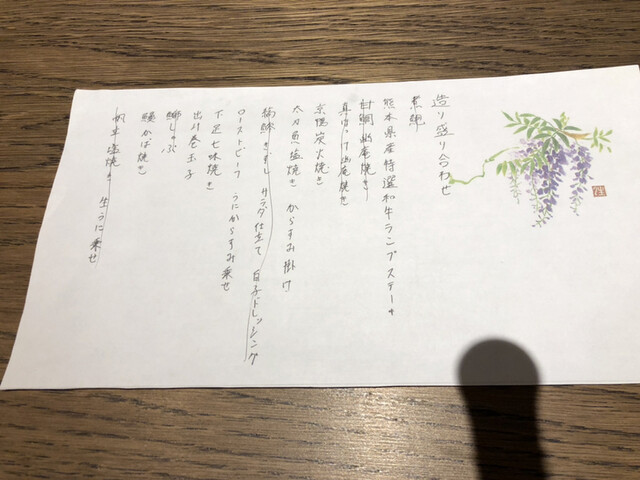 造り盛り合わせ
黒鮑
熊本県産特選和牛ランプステーキ
甘鯛幽庵焼き
真ほっけ幽庵焼き
京鴨炭火焼き
太刀魚塩焼き からすみ掛け
きずし サラダ仕立て 白子ドレッシング
ローストビーフ うにからすみ乗せ
下足七味焼き
出汁巻玉子
鰤しゃぶ
鰻かば焼き
帆立塩焼き 生うに乗せ